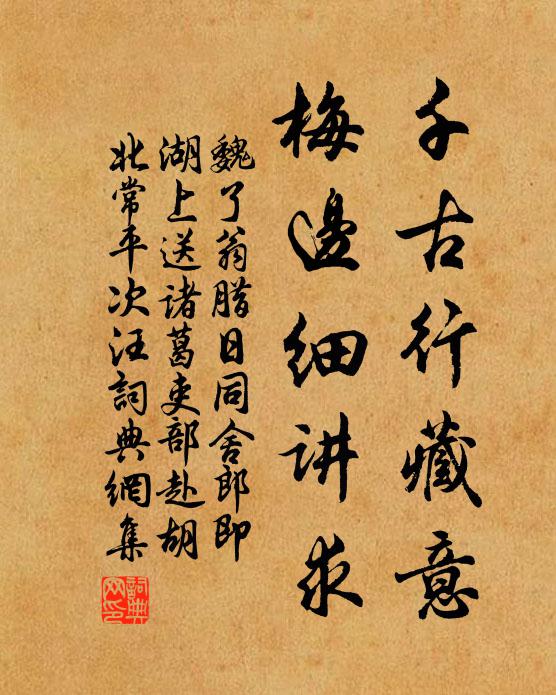 千古行藏意
梅邊细讲求
魏了翁腊日同舍郎即
湖上送诸葛吏部赴胡
北常平次汪詞典網集
詞典
网印